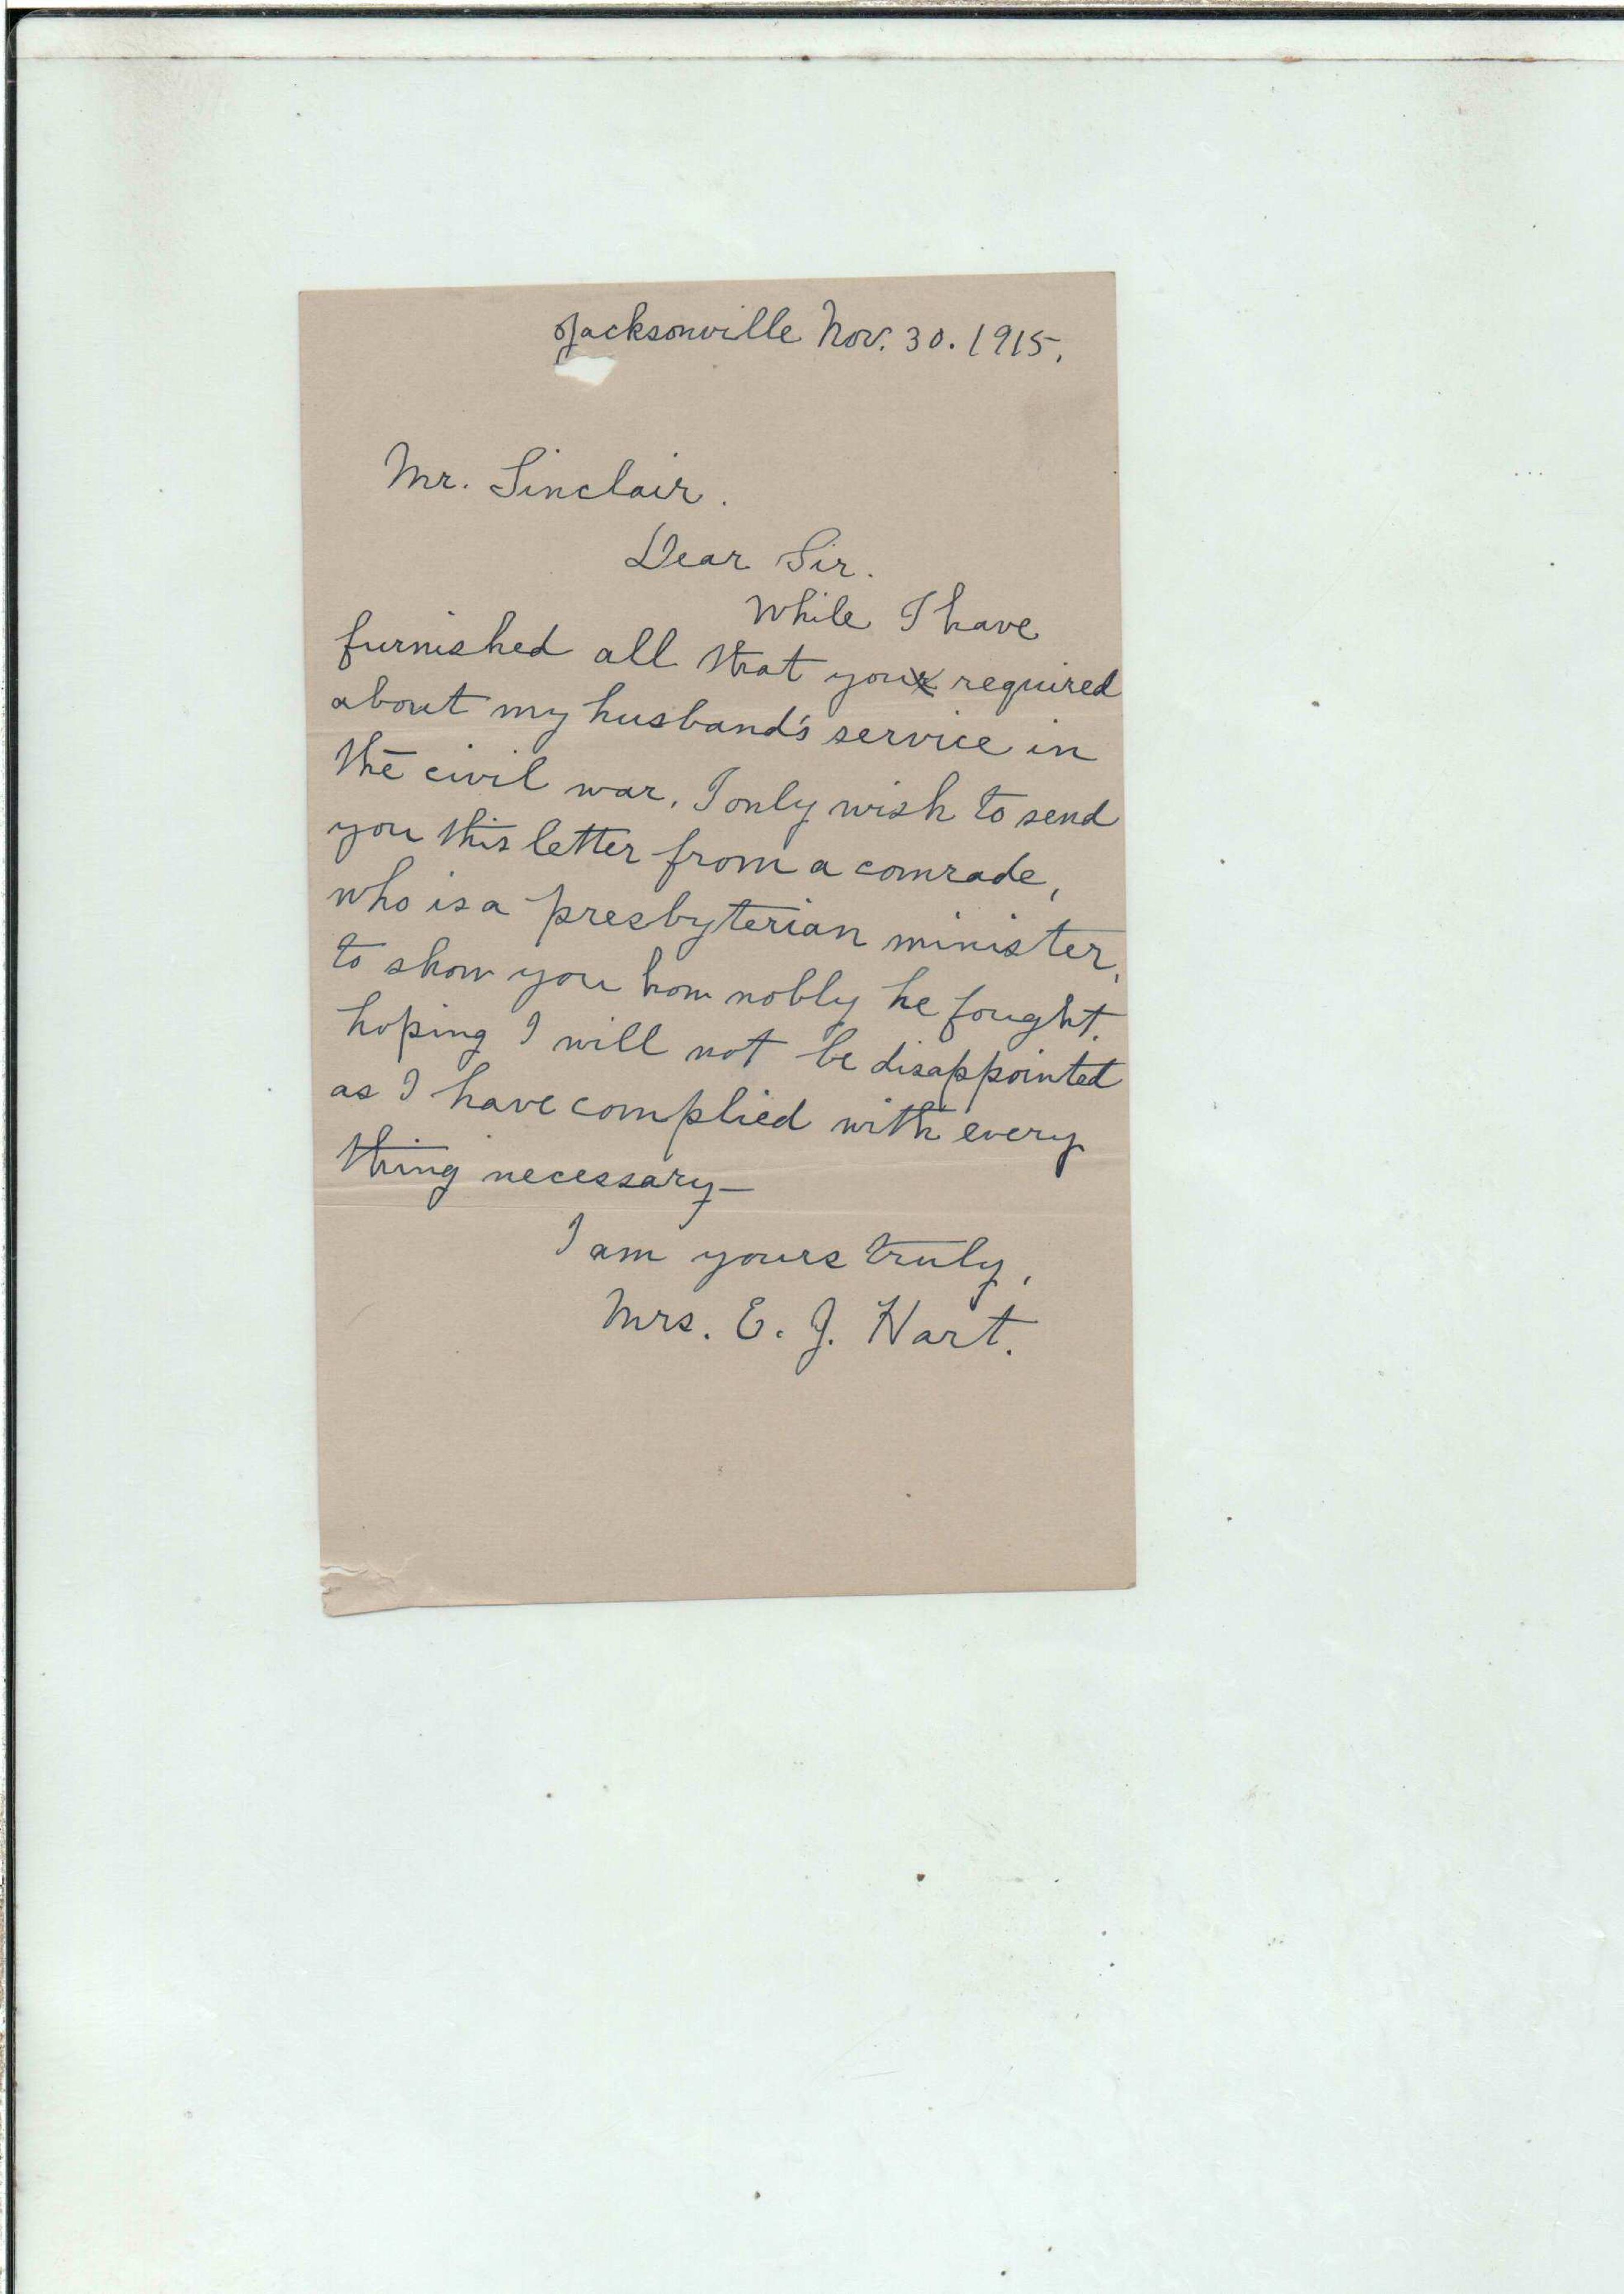 Jacksonville Nov. 30. 1915.
Mr. Sinclair.
Dear Sir.
While I have
furnished all that you required
about my husband's service in
the civil war, I only wish to send
you this letter from a comrade,
who is a presbyterian minister,
to show you how nobly he fought.
hoping I will not be disappointed
as I have complied with every
thing necessary—
I am yours truly,
Mrs. E. J. Hart.